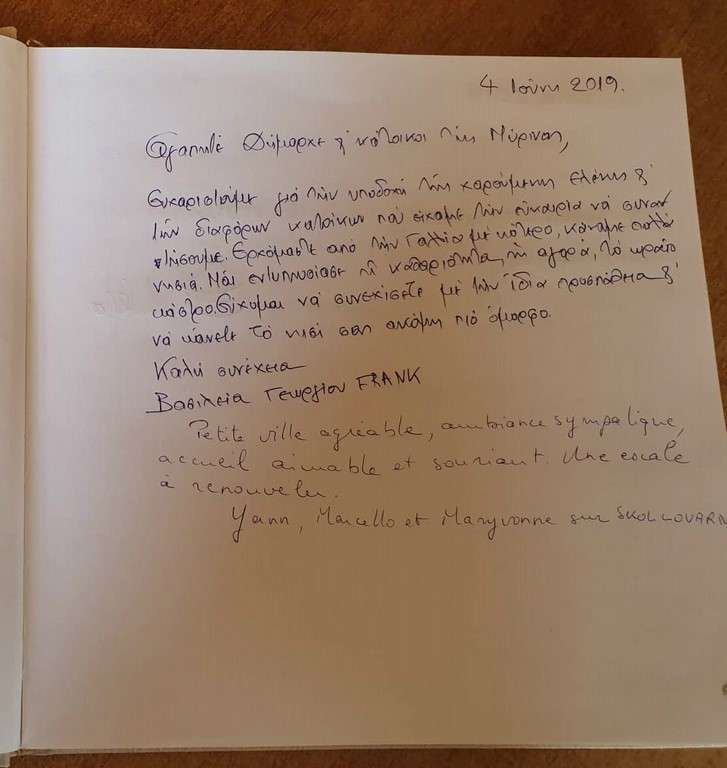 4 Ιούνη 2019.
Αγαπητέ Δήμαρχε & κάτοικοι της Μύρινας,
Ευχαριστούμε για την υποδοχή της χαρούμενης Ελένης &
την διαφόρων κατοίκων που είχαμε την ευκαιρία νά συναν
τήσουμε. Ερχόμαστε από την Γαλλία με κότερο, κάναμε πολλά
νησιά. Μάς εντυπωσίασε η καθαριότητα, η αγορά, τό ωραίο
κάστρο. Εύχομαι νά συνεχίσετε με την ίδια προσπάθεια &
νά κάνετε τό νησί σας ακόμη πιό όμορφο.
Καλή συνέχεια
Βασιλεία Γεωργίου FRANK
Petite ville agréable, ambiance sympatique,
accueil aimable et souriant. Une escale
à renouveler.
Yann, Marcello et Maryvonne sur SKOL LOUARN